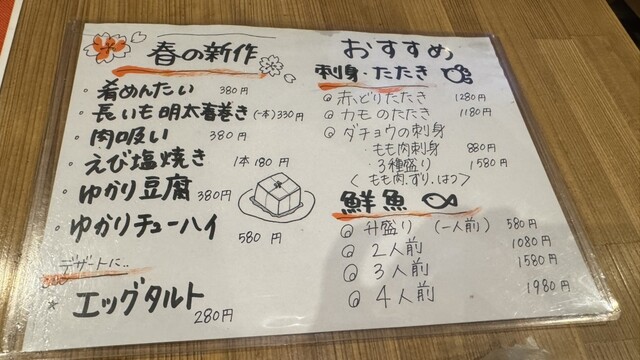 春の新作
・肴めんたい 380円
・長いも明太春巻き(一本)330円
・肉吸い 380円
・えび塩焼き 1本180円
・ゆかり豆腐 380円
・ゆかりチューハイ 580円
デザートに..
* エッグタルト 280円
おすすめ
刺身・たたき
赤どりたたき 1280円
カモのたたき 1180円
ダチョウの刺身
・もも肉刺身 880円
・3種盛り 1580円
<もも肉.ずり.はつ>
鮮魚
升盛り (一人前) 580円
2人前 1080円
3人前 1580円
4人前 1980円